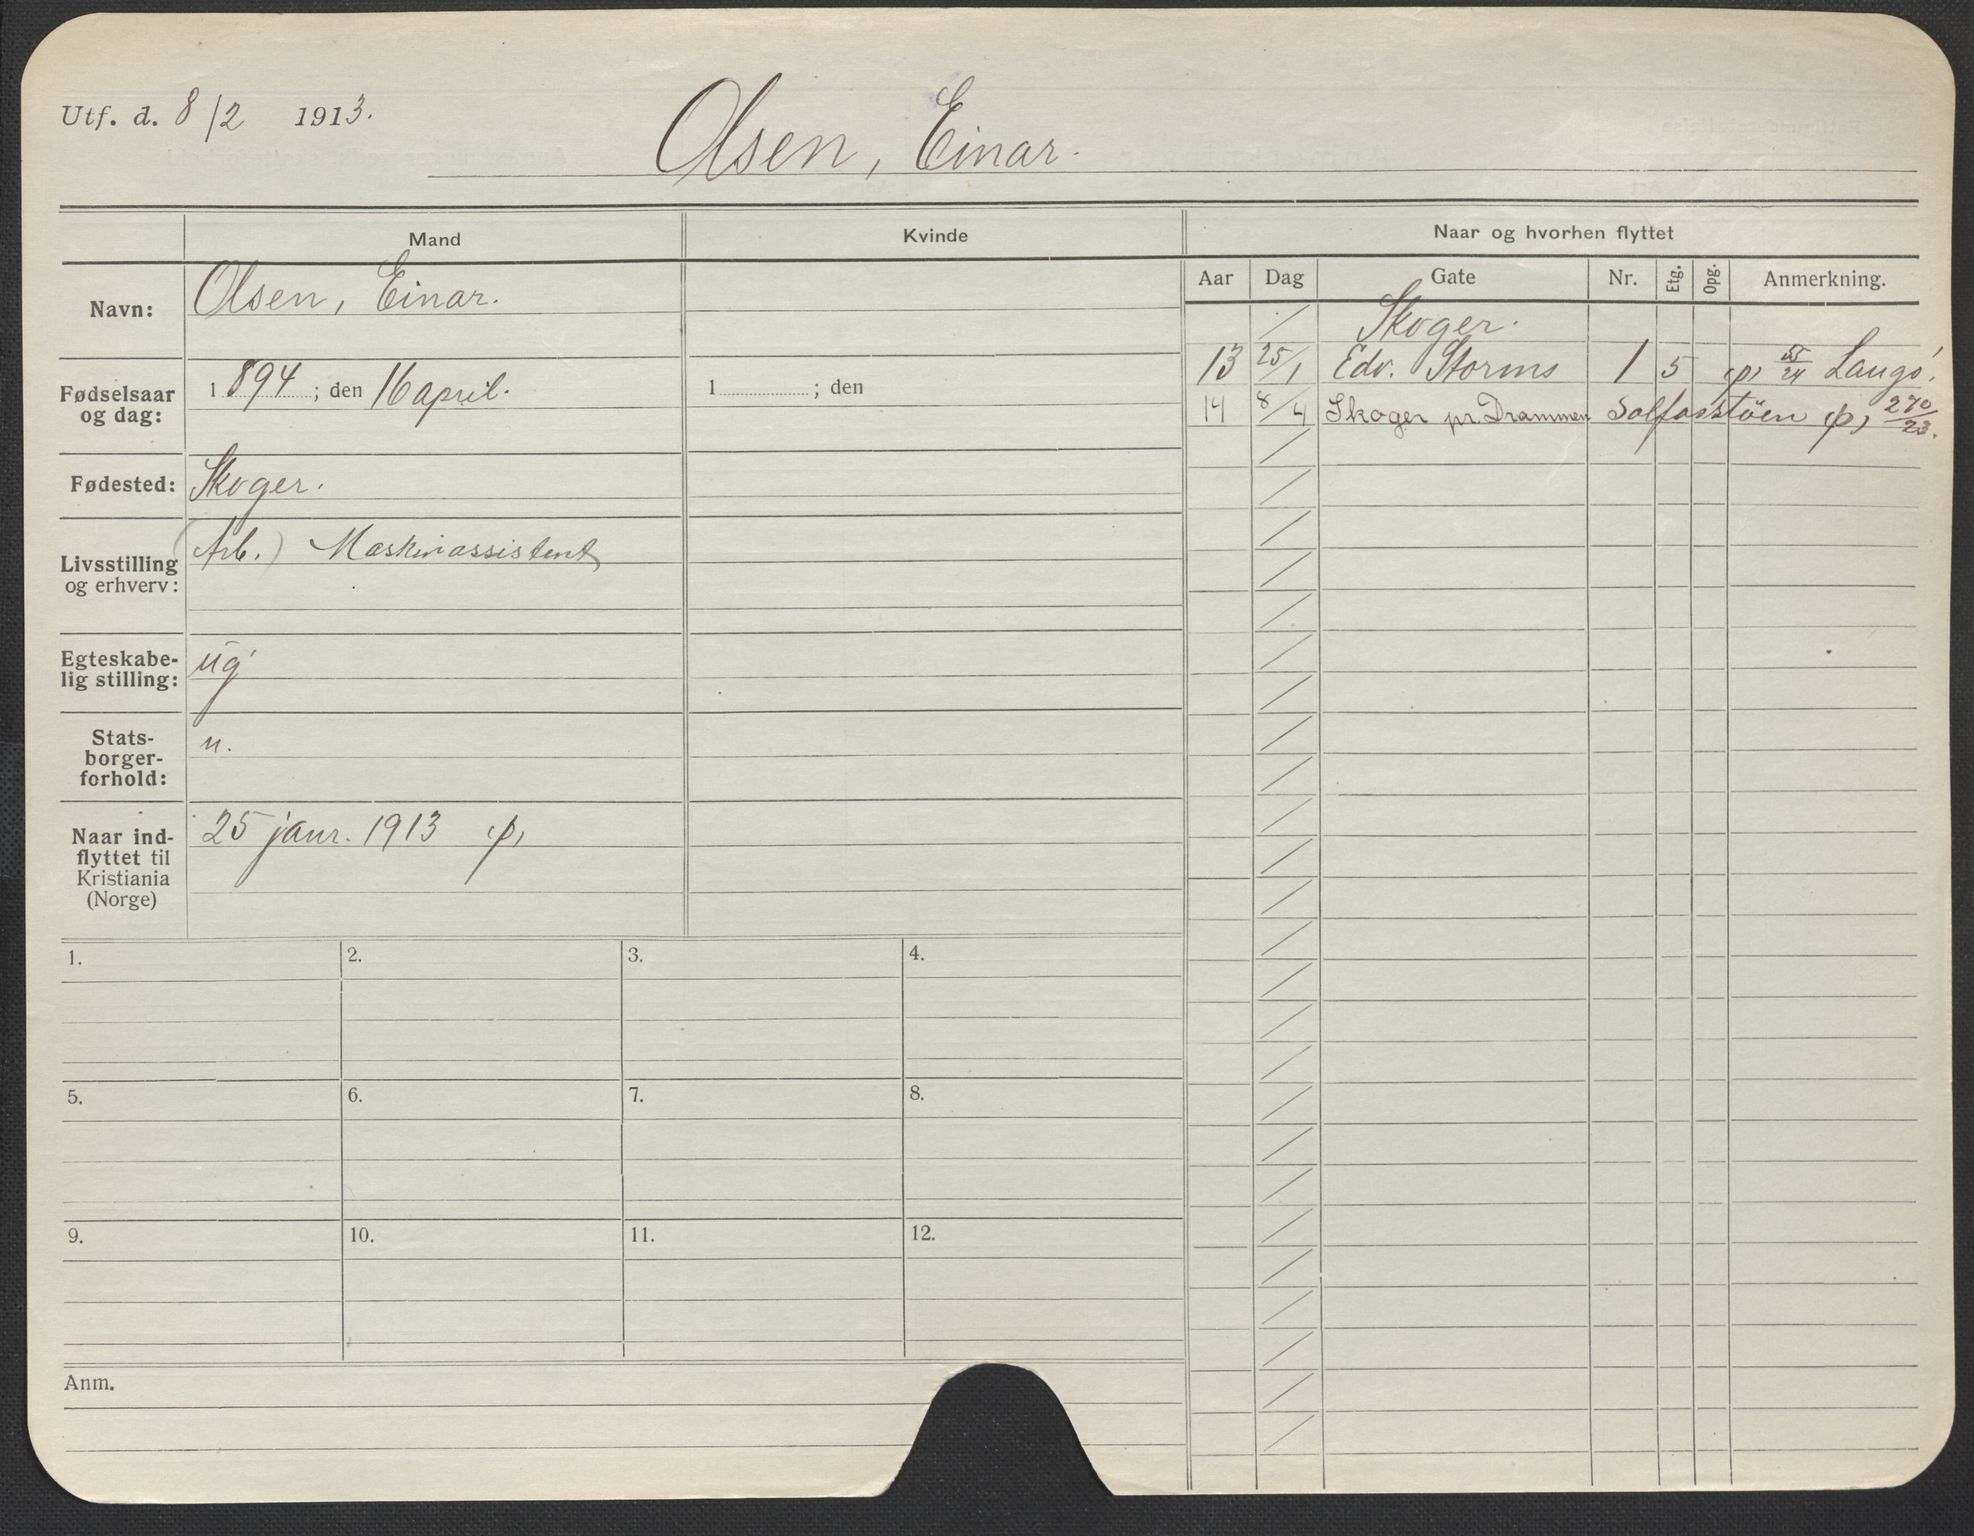 Utf. d. 8/2 1913.
Olsen, Einar.
Mand Kvinde Naar og hvorhen flyttet
Aar Dag Gate Nr. Etg. Opg. Anmerkning.
Navn: Olsen, Einar.
Skoger.
13 25/1 Edv. Storms 1 5 (p) 55/24 Langö.
14 8/4 Skoger pr. Drammen Solfasstöen (p) 270/23.
Fødselsaar
og dag: 1894; den 16 april. 1 ; den
Fødested: Skoger.
Livsstilling
og erhverv: (Arb.) Maskinassistent
Egteskabe-
lig stilling: ug
Stats-
borger-
forhold: n.
Naar ind-
flyttet til
Kristiania
(Norge) 25 janr. 1913 (p)
1. 2. 3. 4.
5. 6. 7. 8.
9. 10. 11. 12.
Anm.